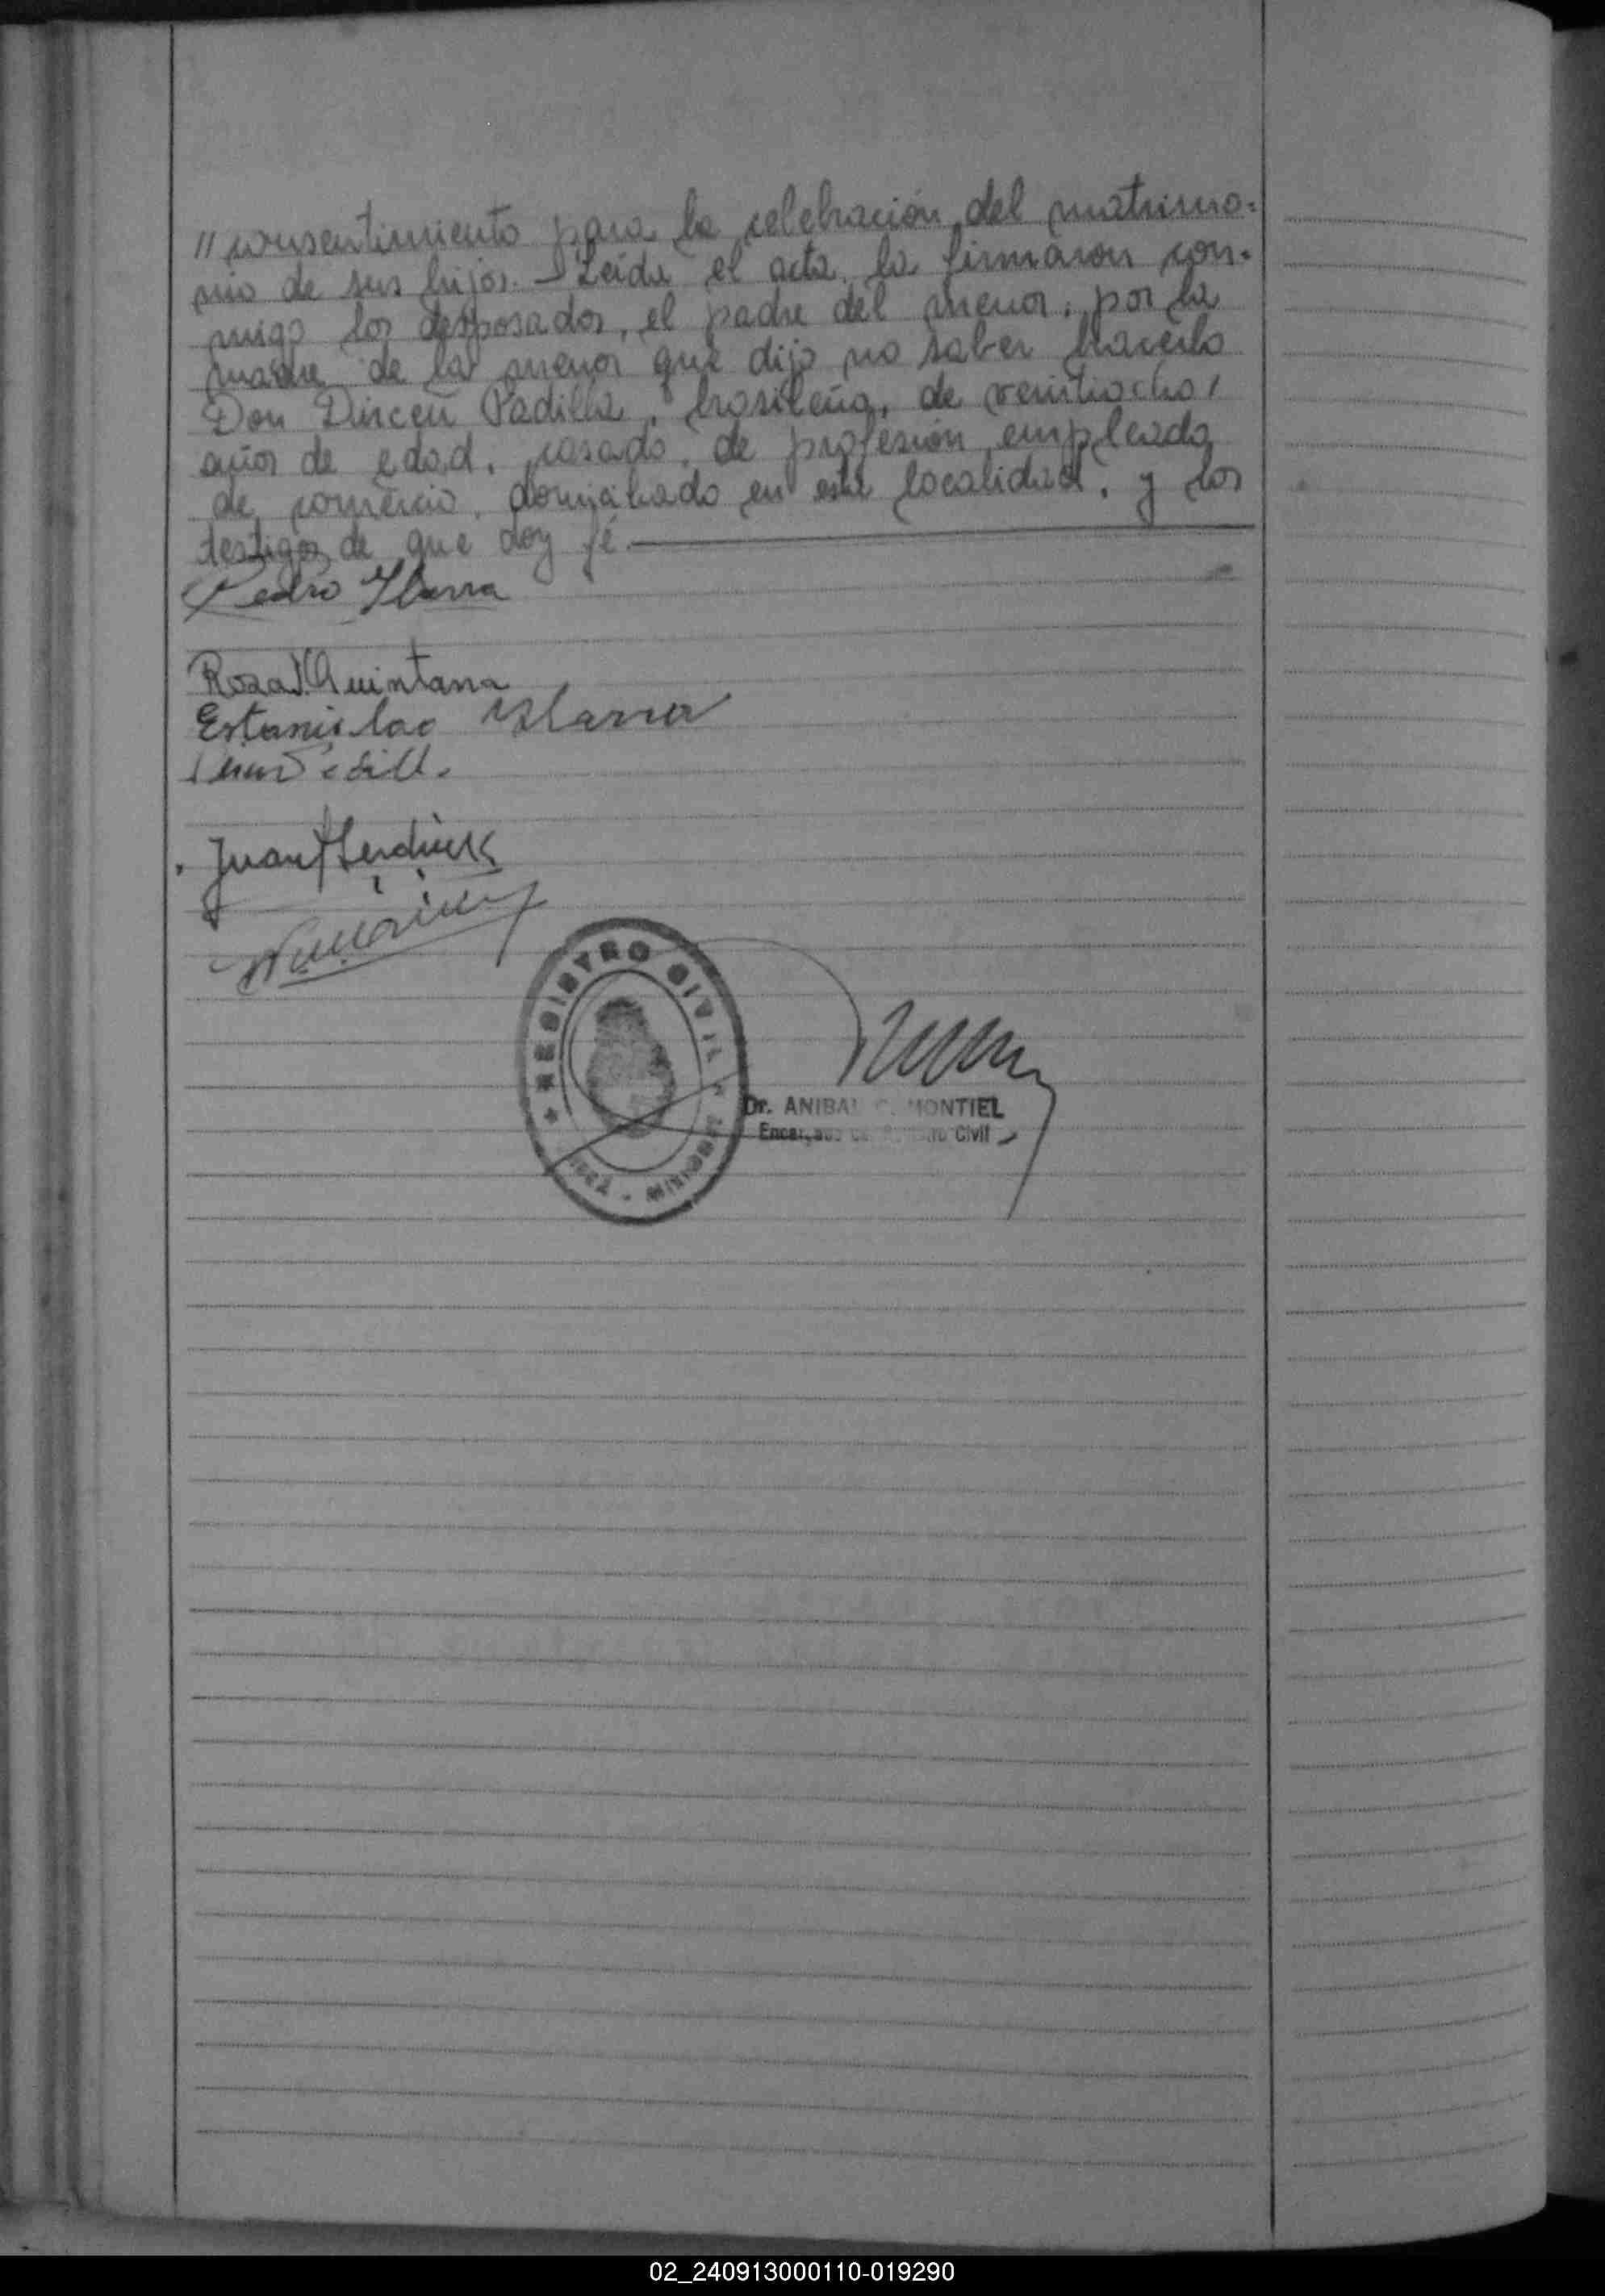 // consentimiento para la celebración del matrimo-
nio de sus hijos.- Leida el acta, la firmaron con-
migo los desposados, el padre del menor, por la
madre de la menor que dijo no saber hacerlo
Don Dirceu Padilla, brasileño, de veintiocho/
años de edad, casado, de profesión empleado
de comercio, domiciliado en esta localidad, y los
testigos de que doy fé.
Pedro Ibarra
Rosa Quintana
Estanislao Ibarra
Juan
REGISTRO CIVIL
MISIONES
Dr. ANIBAL C. MONTIEL
Encargado Registro Civil
02_240913000110-019290